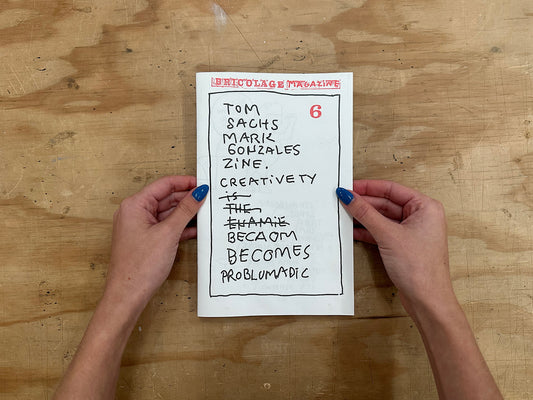 BRICOLAGE MAGAZINE
6
TOM
SACHS
MARK
GONZALES
ZINE.
CREATIVETY
IS
THE
ENAMIE
BECAOM
BECOMES
PROBLUMADIC